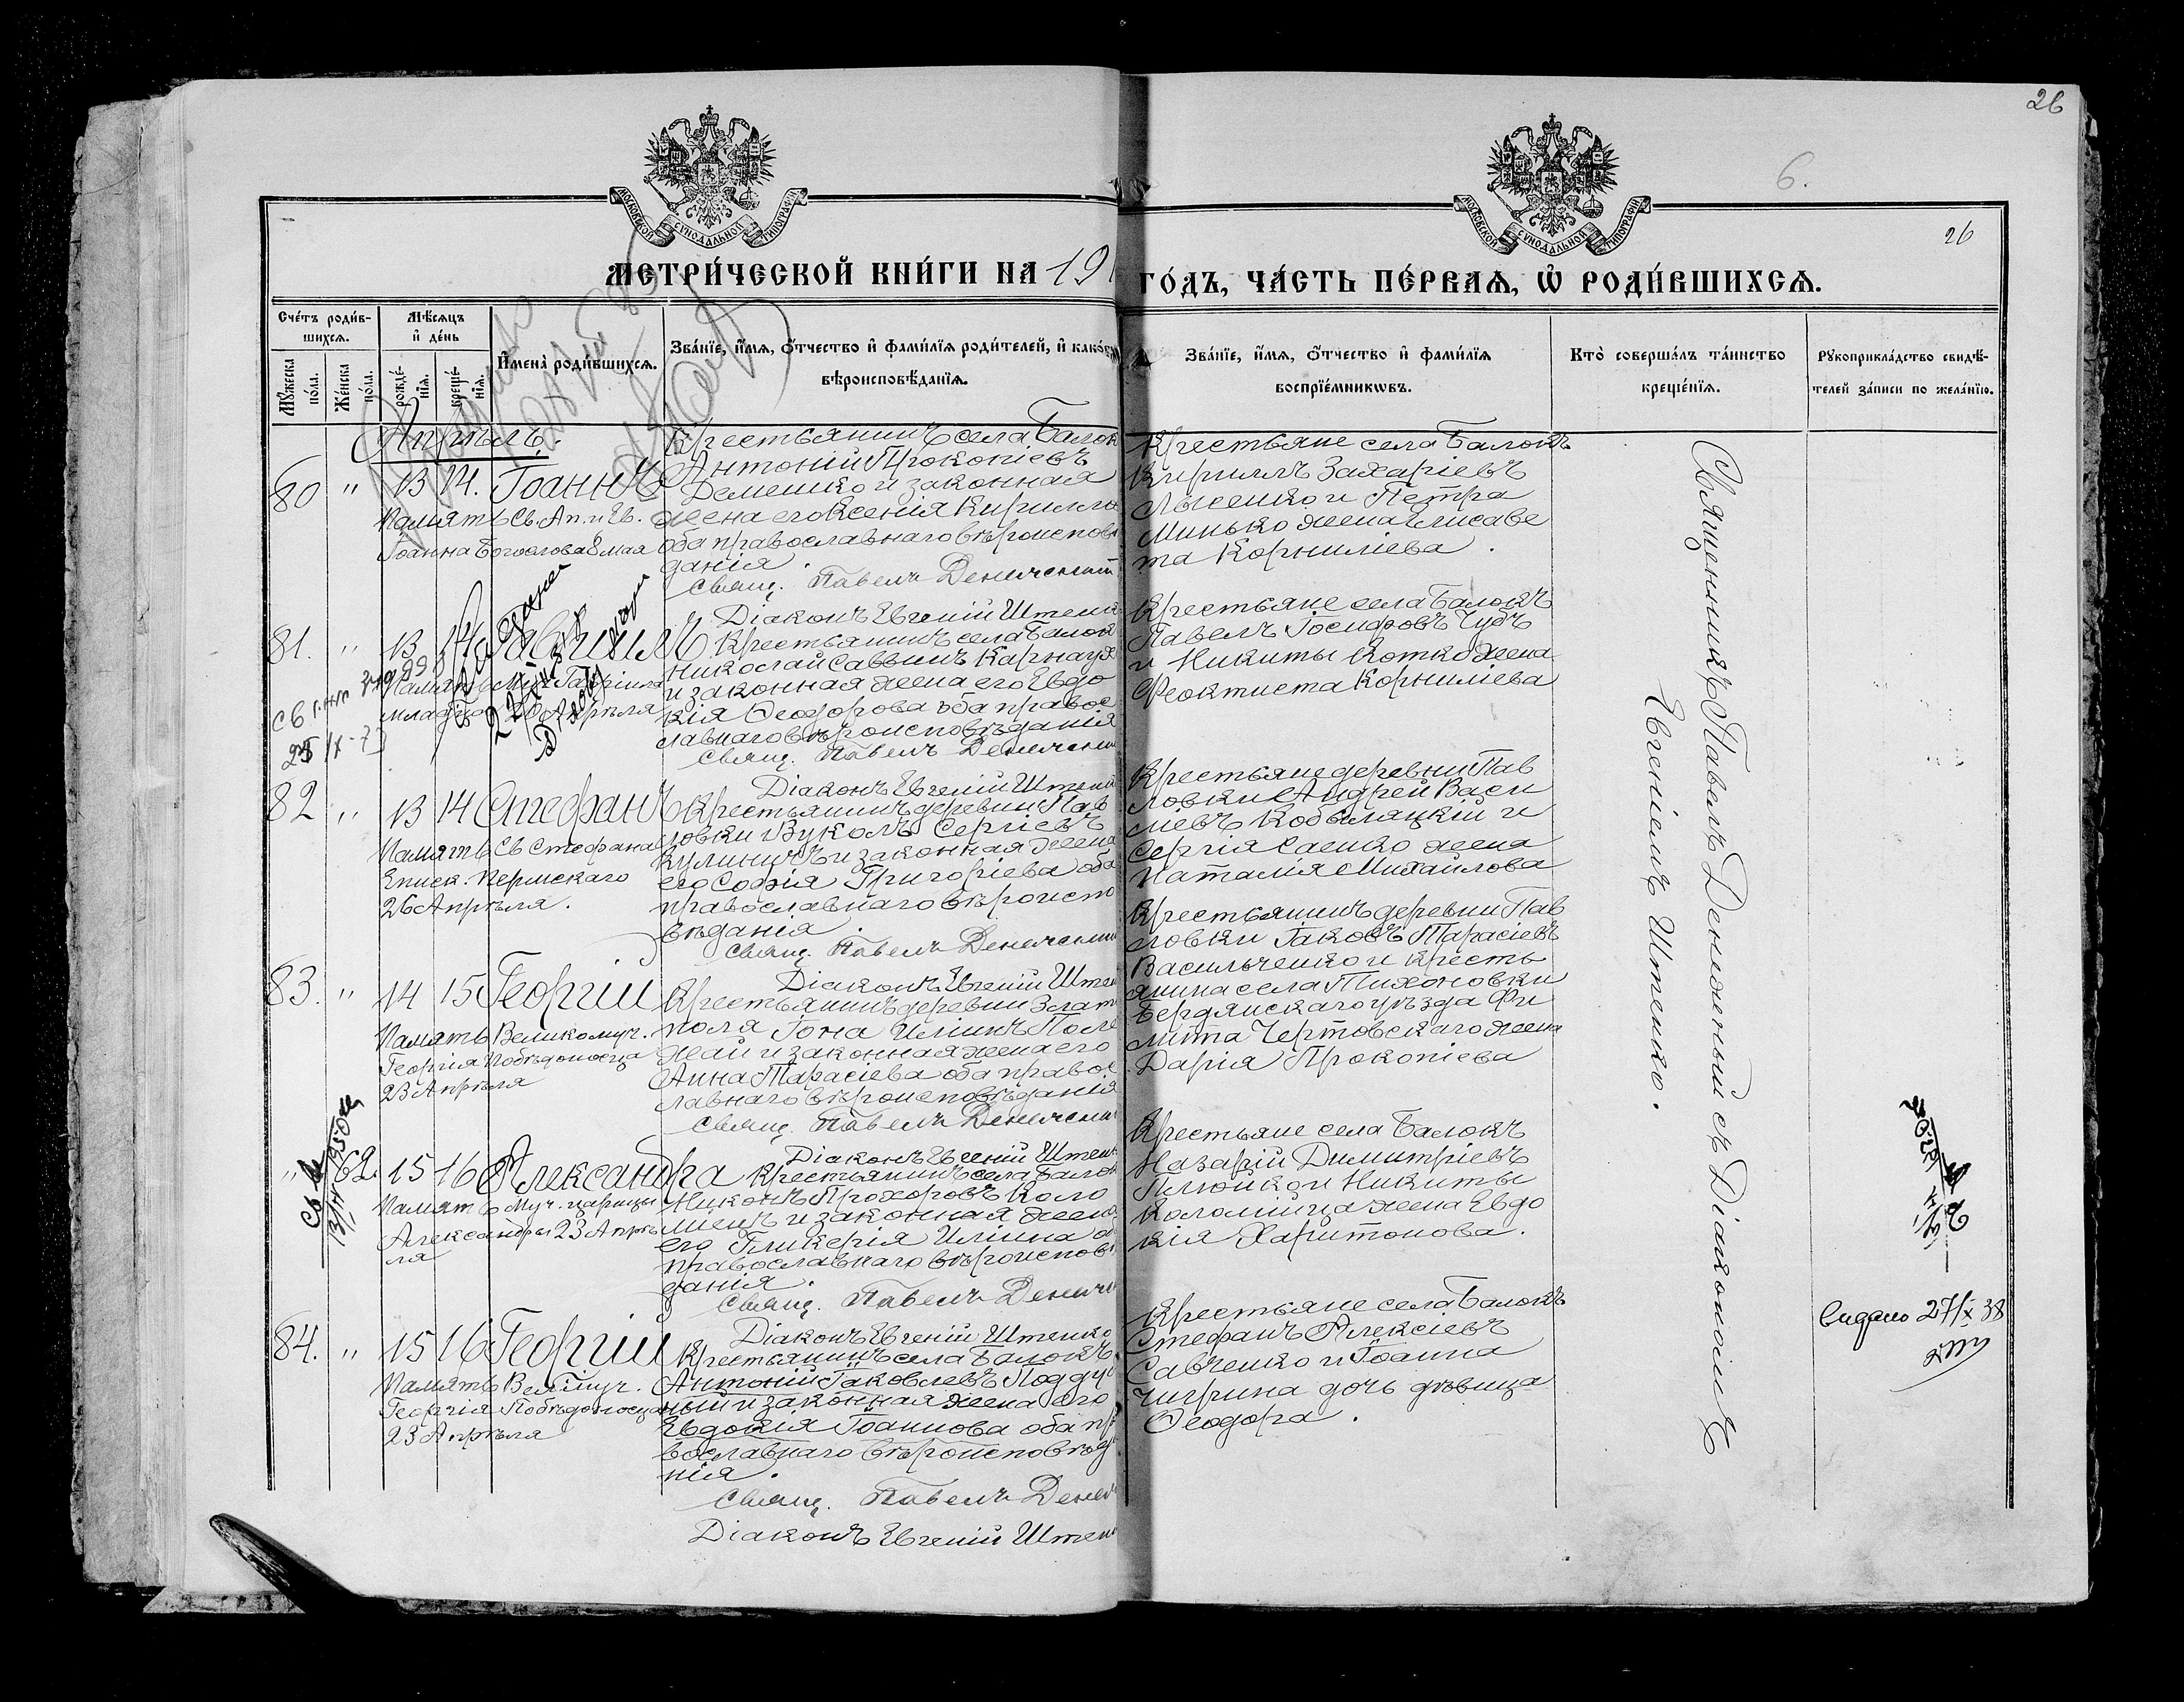 26
6.
26
МОСКОВСКОЙ СУНОДАЛЬНОЙ ТИПОГРАФІИ
МОСКОВСКОЙ СУНОДАЛЬНОЙ ТИПОГРАФІИ
МЕТРИ́ЧЕСКОЙ КНИ́ГИ НА 191
ГО́ДЪ, ЧА́СТЬ ПЕ́РВАѦ, Ѡ҆ РОДИ́ВШИХСѦ.
Сче́тъ роди́в-
шихсѧ.
Мꙋ́жеска по́ла.
Же́нска по́ла.
Мѣ́сѧцъ
и҆ де́нь
рожде́-
нїѧ.
креще́-
нїѧ.
И҆мена̀ роди́вшихсѧ.
Зва́нїе, и҆́мѧ, ѻ҆́тчество и҆ фами́лїѧ роди́телей, и҆ како́
вѣроисповѣ́данїѧ.
Зва́нїе, и҆́мѧ, ѻ҆́тчество и҆ фами́лїѧ
воспрїе́мникѡвъ.
Кто̀ соверша́лъ та́инство
креще́нїѧ.
Рꙋкоприкла́дство свидѣ́-
телей за́писи по жела́нїю.
Апрѣль.
80 " 13 14. Іоаннъ
Память Св. Ап. и Ев.
Іоанна Богослова 8 мая
Крестьянинъ села Балок
Антоній Прокопіевъ
Демешко и законная
жена его Ксенія Кирилло
оба православнаго вѣроисповѣ
данія.
Свящ. Павелъ Денежный
Діаконъ Евгеній Штенк
Крестьяне села Балокъ
Кириллъ Захаріевъ
Лысенко и Петра
Минько жена Елисаве
та Корниліева.
81. " 13 14 Гавріилъ
Память Муч. Гавріила
младца 20 Апрѣля
Крестьянинъ села Балок
Николай Саввинъ Карнаух
и законная жена его Евдо
кія Ѳеодорова оба правос
лавнаго вѣроисповѣданія
Свящ. Павелъ Денежный
Діаконъ Евгеній Штенк
Крестьяне села Балокъ
Павелъ Іосифовъ Чубъ
и Никиты Котко жена
Феоктиста Корниліева
82 " 13 14 Стефанъ
Память Св Стефана
Еписк. Пермскаго
26 Апрѣля.
Крестьянинъ деревни Пав
ловки Вуколъ Сергіевъ
Кулиничъ и законная жена
его Софія Григоріева оба
православнаго вѣроиспо
вѣданія.
Свящ. Павелъ Денежный
Діаконъ Евгеній Штен
Крестьяне деревни Пав
ловки Андрей Васи
ліевъ Кобыляцкій и
Сергія Саенко жена
Наталія Михайлова
83. " 14 15 Георгій
Память Великомуч.
Георгія Побѣдоносца
23 Апрѣля
Крестьянинъ деревни Злат
поля Іона Иліинъ Поле
жай и законная жена его
Анна Тарасіева оба правос
лавнаго вѣроисповѣданія
Свящ. Павелъ Денежн
Діаконъ Евгеній Штенк
Крестьянинъ деревни Пав
ловки Іаковъ Тарасіевъ
Васильченко и кресть
янина села Тихоновки
Бердянскаго уѣзда Фи
липа Чертовскаго жена
Дарія Прокопіева
" 62. 15 16 Александра
Память Муч. царицы
Александры 23 Апрѣ
ля
Крестьянинъ села Балок
Никонъ Прохоровъ Коло
міецъ и законная жена
его Гликерія Иліина об
православнаго вѣроисповѣ
данія.
Свящ. Павелъ Денежн
Діаконъ Евгеній Штенко
Крестьяне села Балокъ
Назарій Димитріевъ
Плюйко и Никиты
Коломійца жена Евдо
кія Харитонова.
84. " 15 16 Георгій
Память Вел. муч.
Георгія Побѣдоносца
23 Апрѣля
Крестьянинъ села Балокъ
Антоній Іаковлевъ Поддуб
ный и законная жена его
Евдокія Іоаннова оба пр
вославнаго вѣроисповѣд
нія.
Свящ. Павелъ Денеж
Діаконъ Евгеній Штен
Крестьяне села Балокъ
Стефанъ Алексіевъ
Савченко и Іоанна
Чигрина дочь дѣвица
Ѳеодора.
Священникъ Павелъ Денежный съ Діакономъ
Евгеніемъ Штенко.
Видано 27/ІХ 38